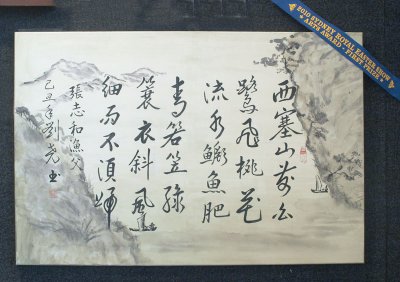 西塞山前白
鷺飛桃花
流水鱖魚肥
青箬笠綠
蓑衣斜風
細雨不須歸
張志和漁父
己丑年劉堯書
2010 SYDNEY ROYAL EASTER SHOW
ARTS AWARD - FIRST PRIZE